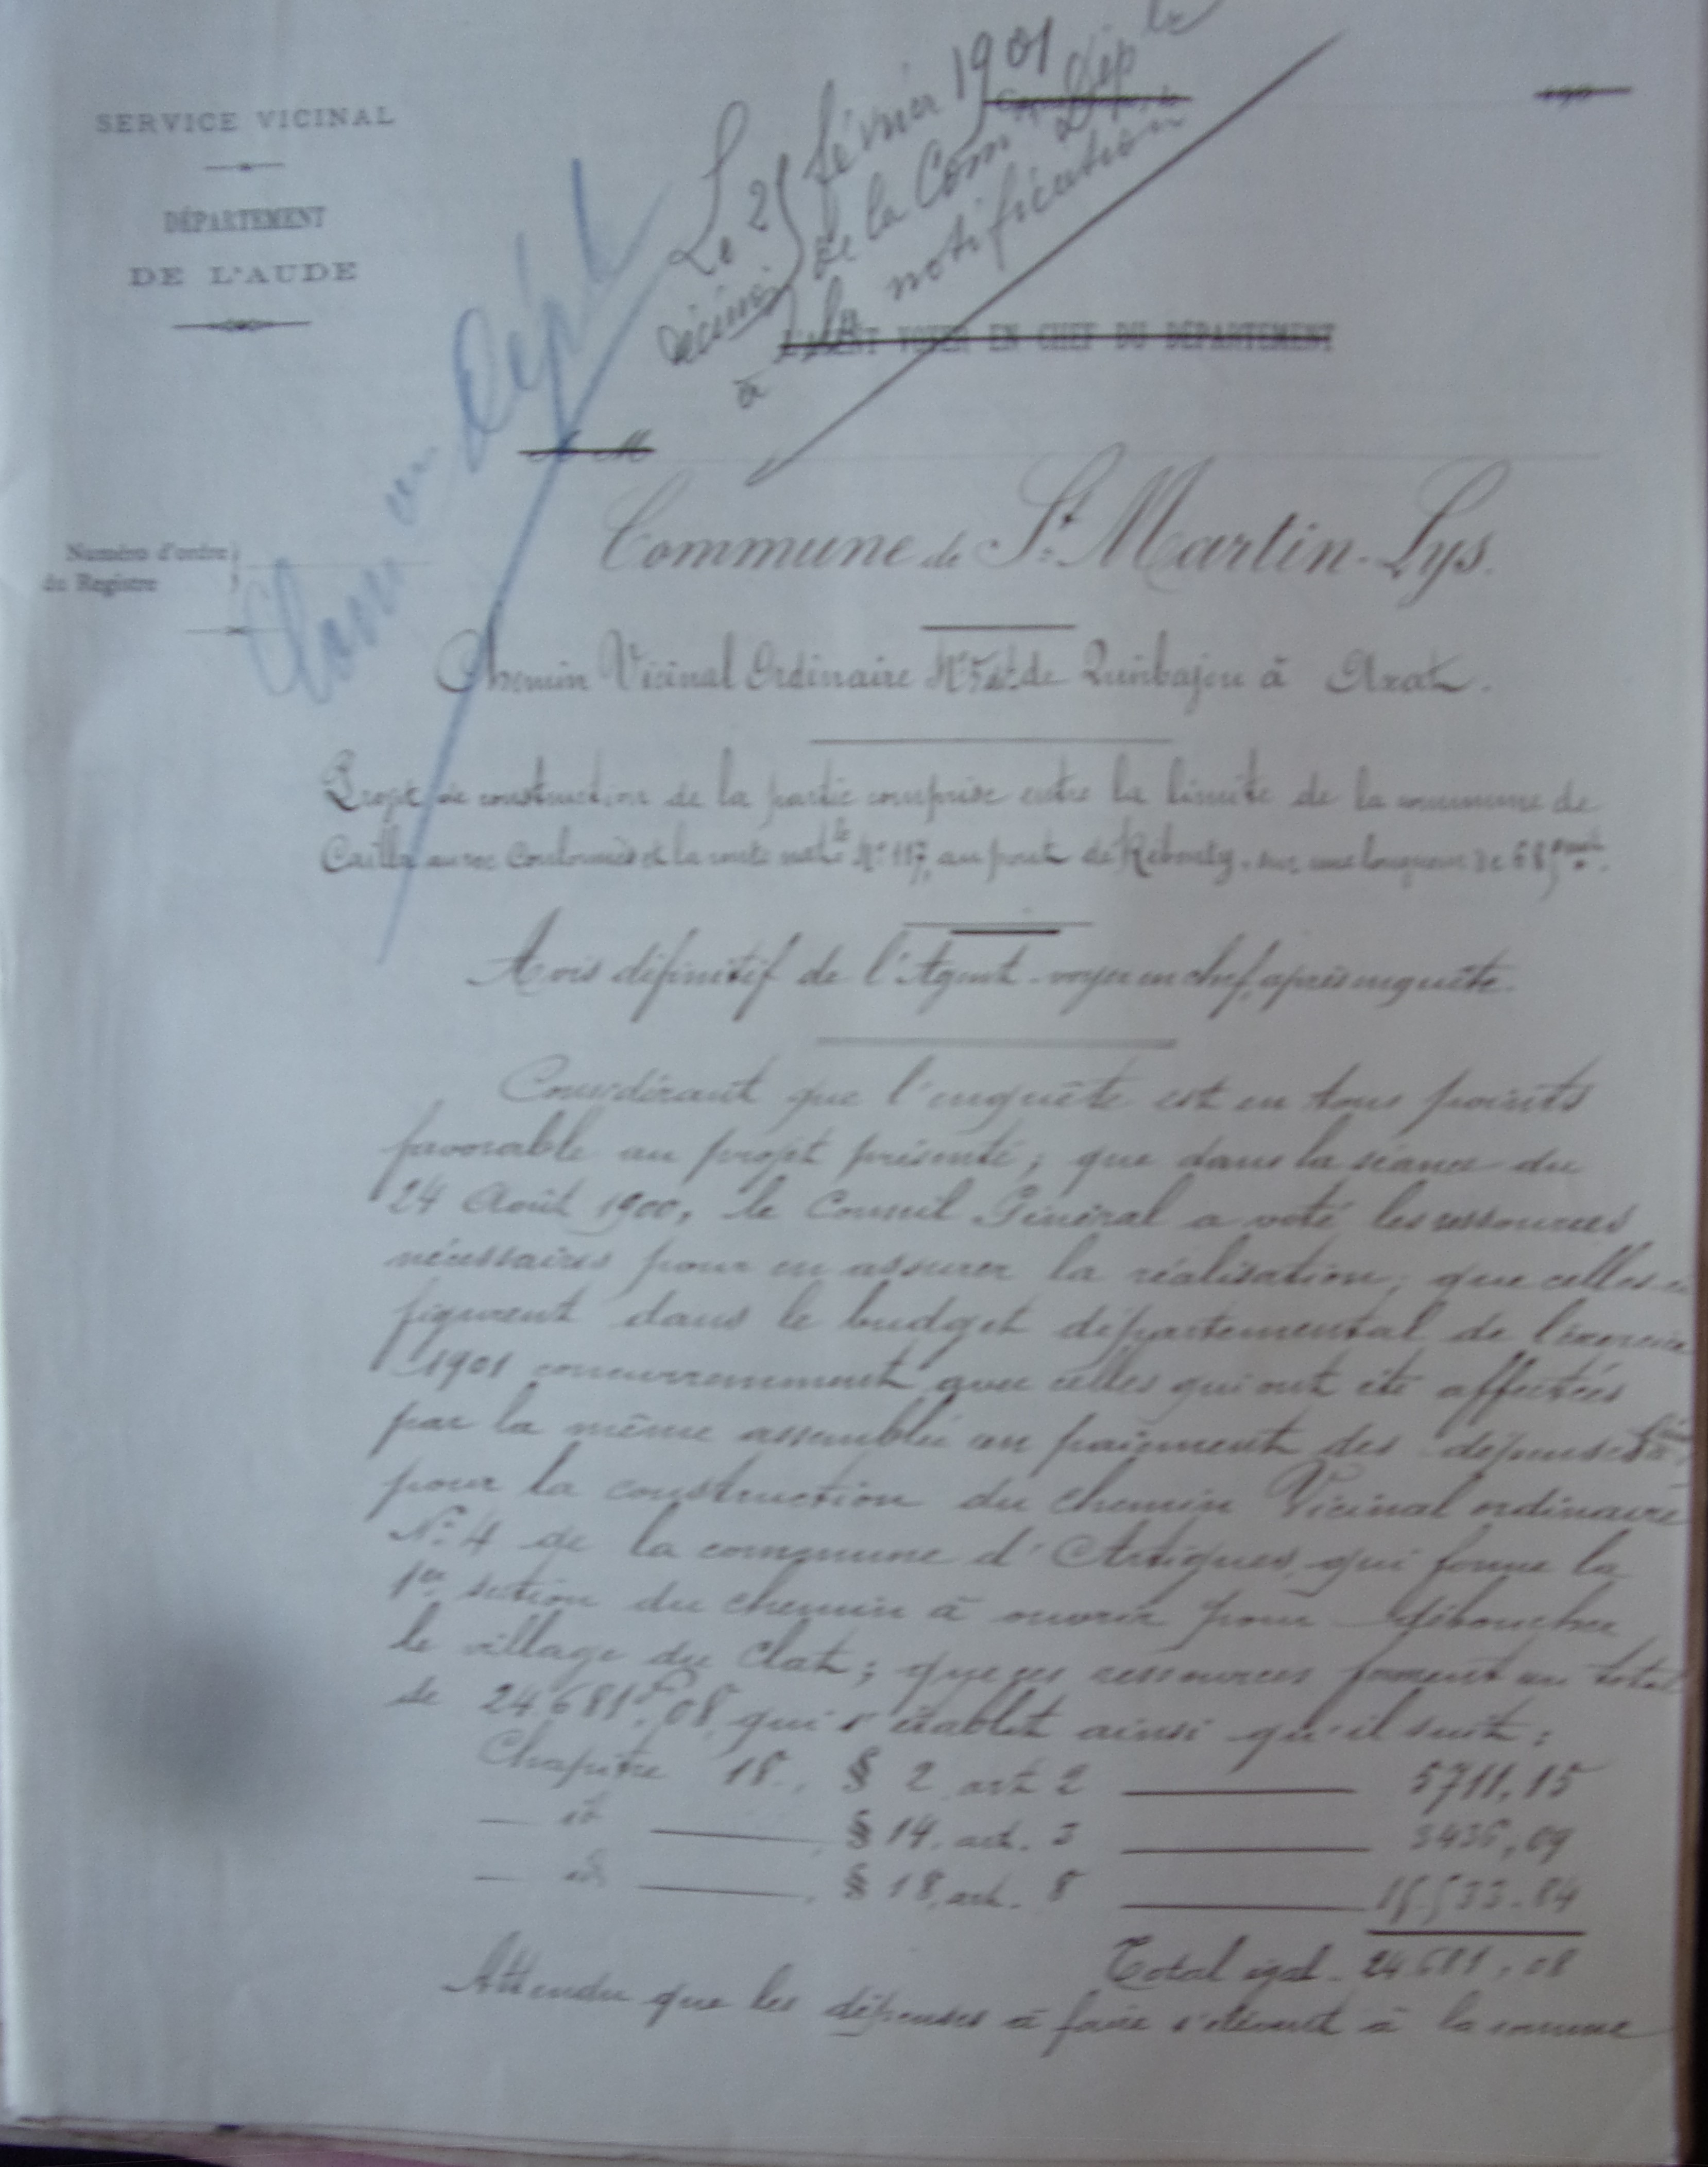 SERVICE VICINAL
DÉPARTEMENT
DE L'AUDE
Le 25 février 1901
décision de la Com^on Dép^le
à la notification
L'AGENT VOYER EN CHEF DU DÉPARTEMENT
A M
Com^on Dép^le
Numéro d'ordre
du Registre
Commune de S^t Martin-Lys.
Chemin Vicinal Ordinaire N° de Quirbajou à Axat.
Projet de construction de la partie comprise entre la limite de la commune de
Cailla avec et la route nat^le N° 117, au pont de Rebouty, sur une longueur de 685
Avis définitif de l'Agent-voyer en chef, après enquête.
Considérant que l'enquête est en tous points
favorable au projet présenté; que dans la séance du
24 Août 1900, le Conseil Général a voté les ressources
nécessaires pour en assurer la réalisation; que celles-ci
figurent dans le budget départemental de l'exercice
1901 concurremment avec celles qui ont été affectées
par la même assemblée au paiement des dépenses
pour la construction du chemin Vicinal ordinaire
N° 4 de la commune d'Artigues, qui forme la
1^re section du chemin à ouvrir pour déboucher
le village du Clat; que ces ressources forment un total
de 24681^f,08 qui s'établit ainsi qu'il suit:
Chapitre 18., § 2 art 2 5711,15
— id — § 14. art. 3 3436,09
— id — § 18, art. 8 15.533.84
Total égal. 24681,08
Attendu que les dépenses à faire s'élèvent à la somme